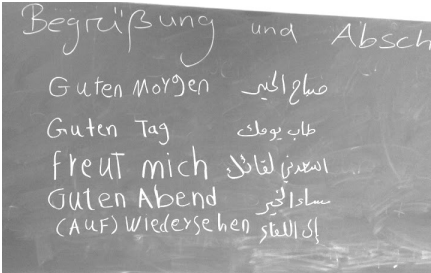 Begrüßung und Absch
Guten Morgen صباح الخير
Guten Tag طاب يومك
Freut mich اسعدني لقائك
Guten Abend مساء الخير
(AUF) Wiedersehen إلى اللقاء